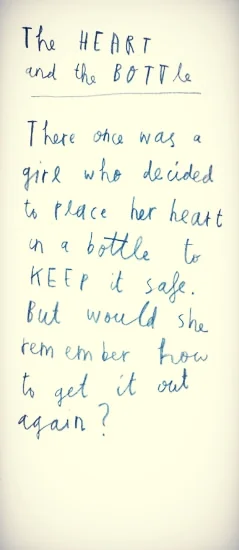 The HEART
and the BOTTle
There once was a
girl who decided
to place her heart
in a bottle to
KEEP it safe.
But would she
remember how
to get it out
again?